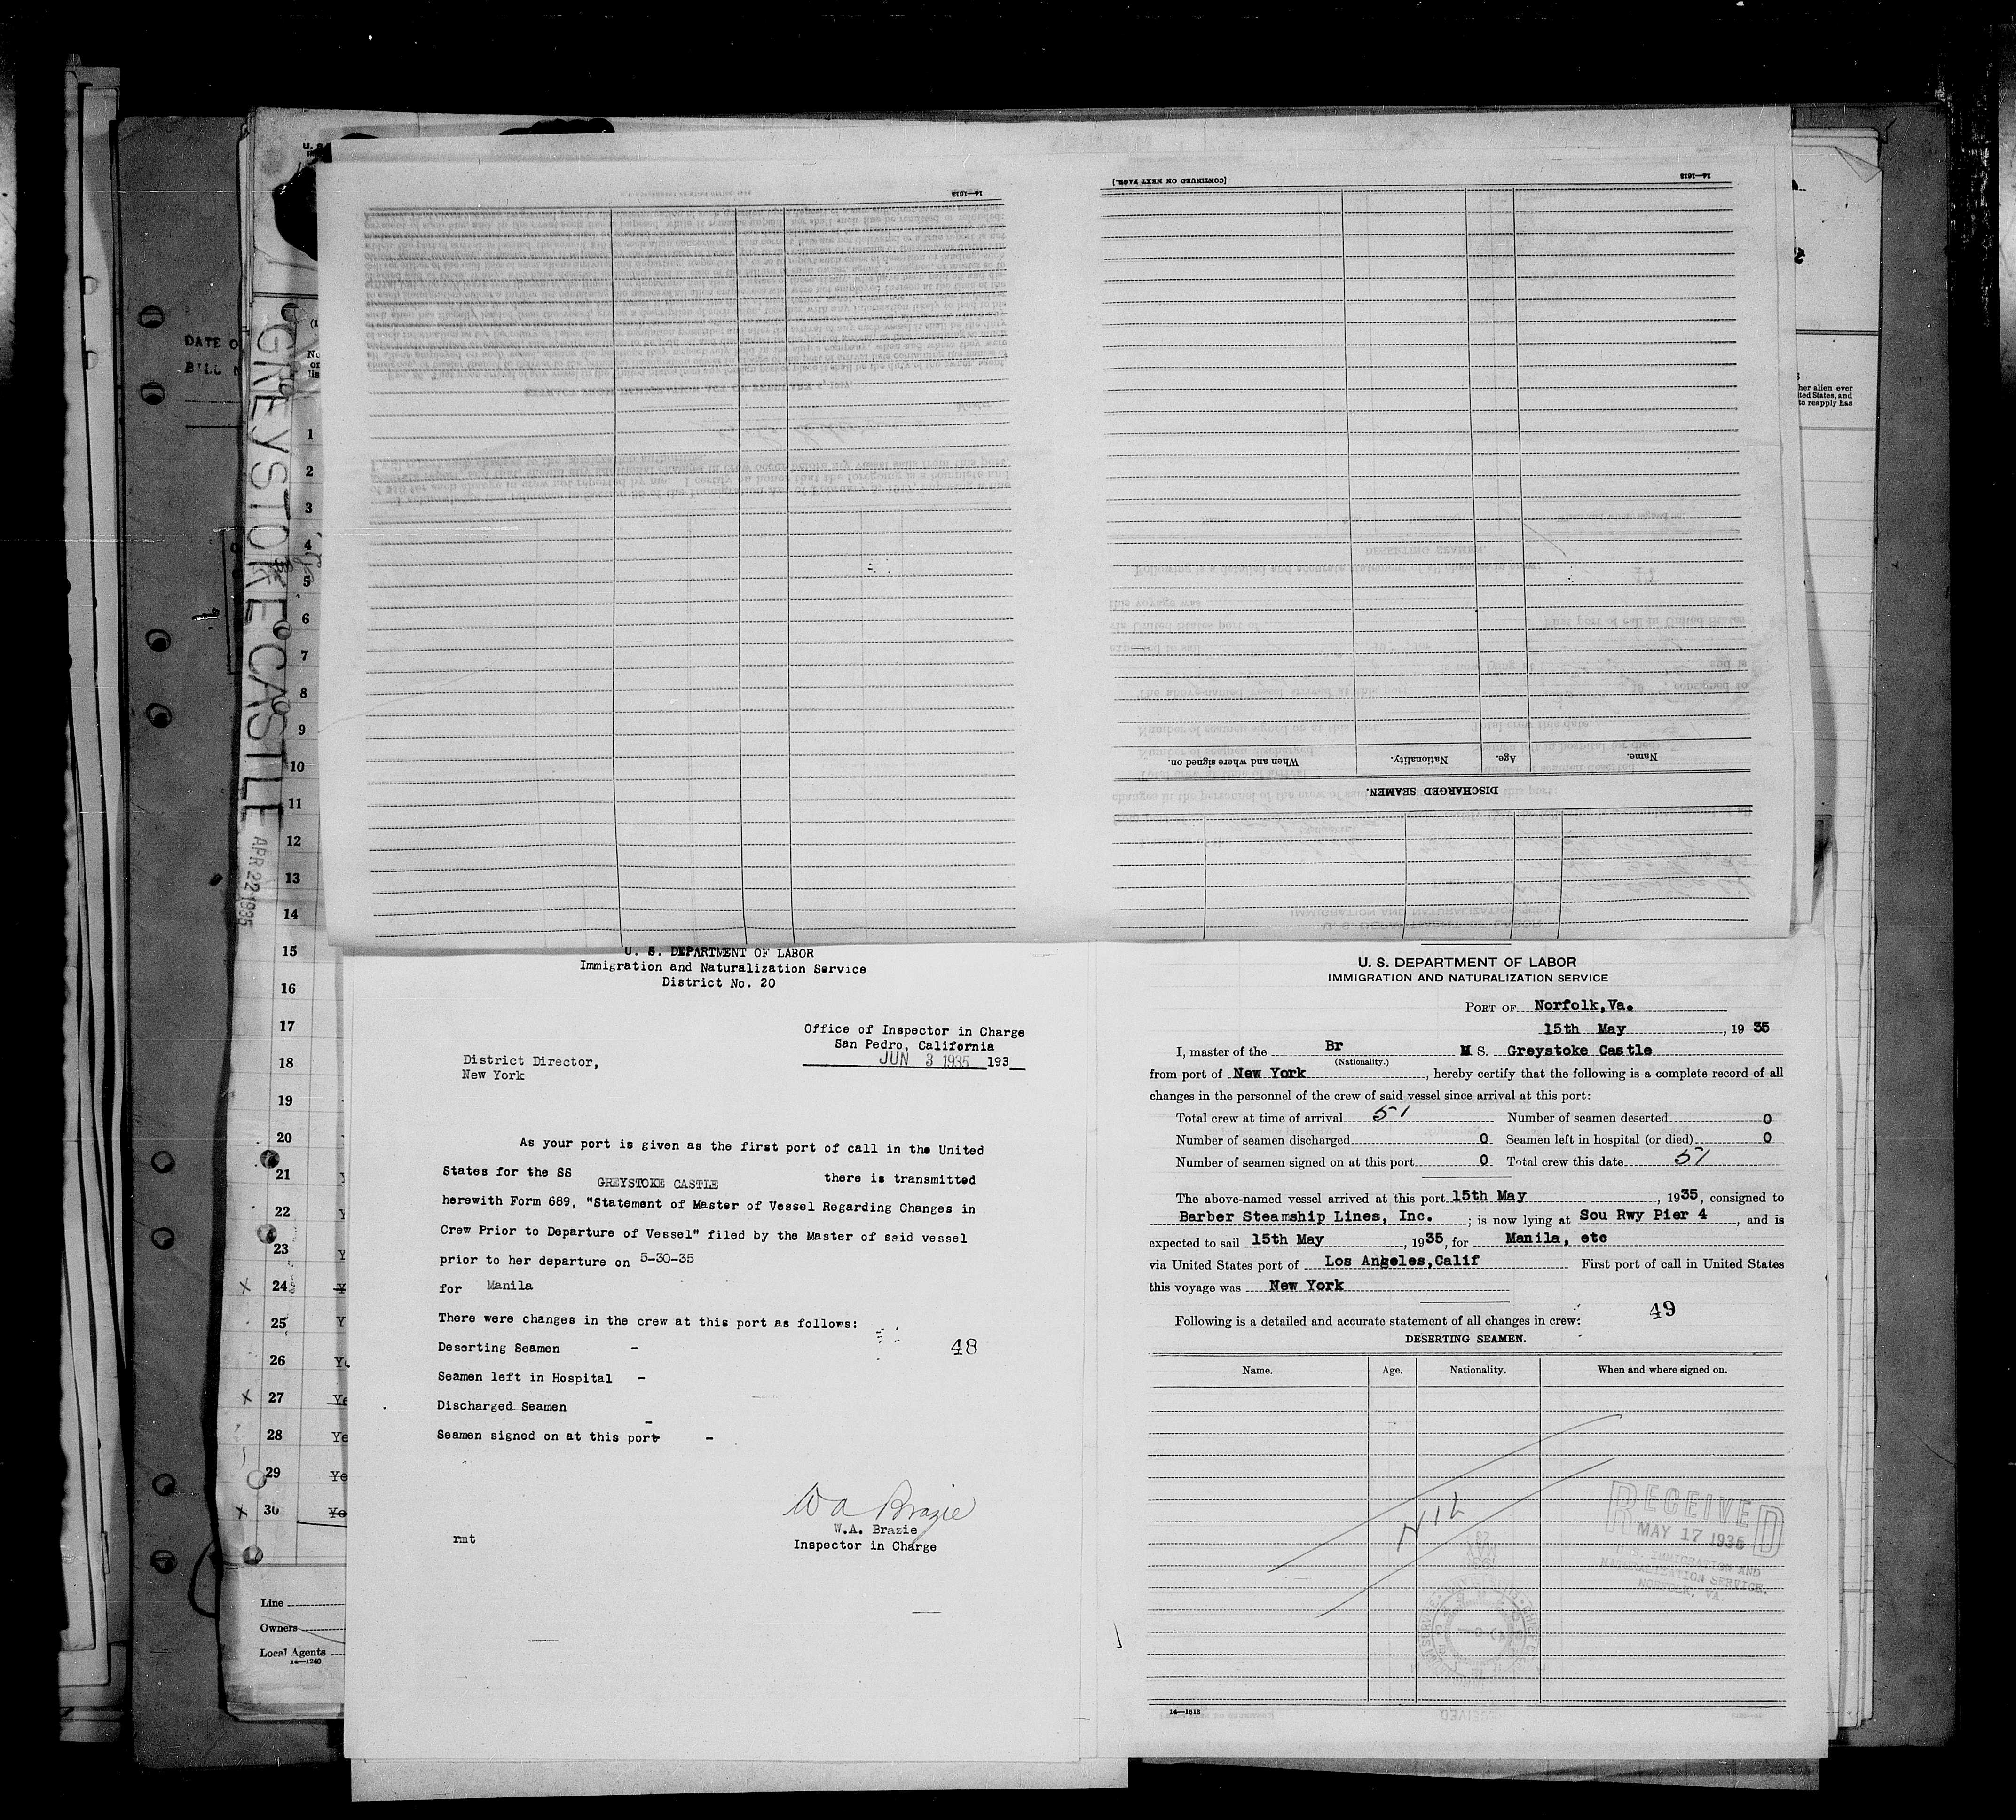 DATE O
BILL
GREYSTOKE CASTLE APR 22 1935
1
2
3
4
5
6
7
8
9
10
11
12
13
14
15
16
17
18
19
20
21
22
23
24
25
26
27
28
29
30
Line
Owners
Local Agents
14—1240
her alien ever
ted States, and
to reapply has
14—1613
[CONTINUED ON NEXT PAGE.]
14—1613
DISCHARGED SEAMEN.
Name. Age. Nationality. When and where signed on.
U. S. DEPARTMENT OF LABOR
Immigration and Naturalization Service
District No. 20
Office of Inspector in Charge
San Pedro, California
JUN 3 1935 193
District Director,
New York
As your port is given as the first port of call in the United
States for the SS GREYSTOKE CASTLE there is transmitted
herewith Form 689, "Statement of Master of Vessel Regarding Changes in
Crew Prior to Departure of Vessel" filed by the Master of said vessel
prior to her departure on 5-30-35
for Manila
There were changes in the crew at this port as follows:
Deserting Seamen -
48
Seamen left in Hospital -
Discharged Seamen -
Seamen signed on at this port -
W A Brazie
W.A. Brazie
Inspector in Charge
rmt
U. S. DEPARTMENT OF LABOR
IMMIGRATION AND NATURALIZATION SERVICE
PORT OF Norfolk,Va.
15th May, 19 35
I, master of the Br M S. Greystoke Castle
(Nationality.)
from port of New York, hereby certify that the following is a complete record of all
changes in the personnel of the crew of said vessel since arrival at this port:
Total crew at time of arrival 51 Number of seamen deserted 0
Number of seamen discharged 0 Seamen left in hospital (or died) 0
Number of seamen signed on at this port 0 Total crew this date 51
The above-named vessel arrived at this port 15th May, 1935, consigned to
Barber Steamship Lines, Inc. ; is now lying at Sou Rwy Pier 4, and is
expected to sail 15th May, 1935, for Manila, etc
via United States port of Los Angeles,Calif First port of call in United States
this voyage was New York
49
Following is a detailed and accurate statement of all changes in crew:
DESERTING SEAMEN.
Name. Age. Nationality. When and where signed on.
NIL
RECEIVED
MAY 17 1935
U.S. IMMIGRATION AND
NATURALIZATION SERVICE,
NORFOLK, VA.
14—1613